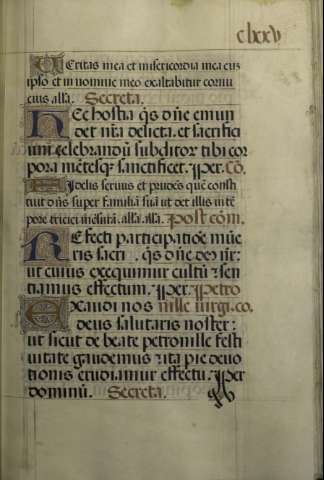 clxxv
Veritas mea et misericordia mea cuz
ipso et in nomine meo exaltabitur cornu
eius alla. Secreta.
Hec hostia q̄s dn̄e emun
det nr̄a delicta. et sacrifici
um celebrandū subditor tibi cor
pora mētesqꝫ sanctificet. Per. Cō.
Fidelis seruus et prudēs quē consti
tuit dn̄s super familiā suā ut det illis in tē
pore tritici mēsurā. alla. alla. Post cōm.
Refecti participatiōe mūe
ris sacri . q̄s dn̄e deꝰ nr̄:
ut cuius exequimur cultū sen
tiamus effectum. Per. Petro
Exaudi nos nille uirgi. co.
deus salutaris noster:
ut sicut de beate petronille festi
uitate gaudemus ita pie deuo
tionis erudiamur effectu. Per
dominū. Secreta.